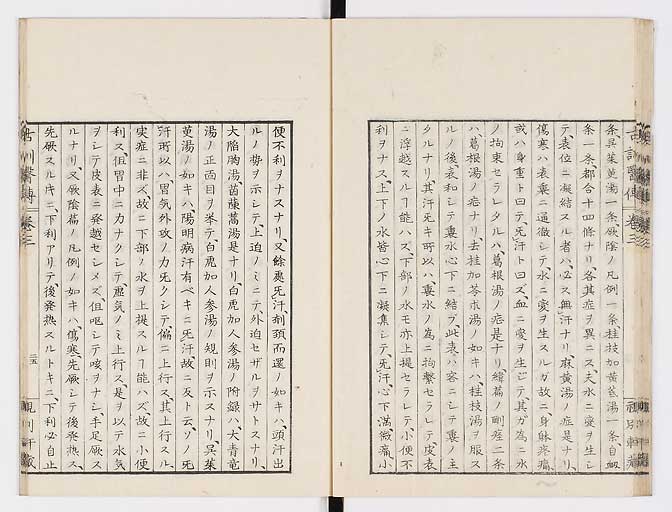 條呉茱萸湯一条厥陰ノ凡例一条桂枝加黄芪湯一条自汗
条一条都合十四條ナリ各其症ヲ異ニス夫水ニ変ヲ生シ
テ表位ニ凝結スル者ハ必ス無汗ナリ麻黄湯ノ症是ナリ
傷寒ハ表裏ニ通徹シテ水ニ変ヲ生スルガ故ニ身躰疼痛
或ハ身重ト曰テ旡汗ト曰ズ血ニ変ヲ生ジテ其ガ為ニ水
ノ拘束セラレタルハ葛根湯ノ症是ナリ
ハ葛根湯ノ症ナリ去桂加苓朮湯ノ如キハ桂枝湯ヲ服ス
ルノ後表和シテ裏水心下ニ結ブ此表ハ客ニシテ裏ノ主
タルナリ其汗旡キ所以ハ裏水ノ為ニ拘繋セラレテ皮表
ニ浮越スルヿ能ハズ下部ノ水モ亦上提セラレテ小便不
利ヲナス上下ノ水皆心下ニ凝集シテ旡汗心下満微痛小
便不利ヲナスナリ又餘處旡汗剤頸而還ノ如キハ頭汗出
ルノ勢ヲ示シテ上迫ノミニテ外迫セザルヲサトスナリ
大陥胸湯茵蔯蒿湯是ナリ白虎加人参湯ノ附録ハ大青竜
湯ノ正面目ヲ挙テ白虎加人参湯ノ規則ヲ示スナリ呉茱
萸湯ノ如キハ陽明病汗有ベキニ旡汗故ニ反ト云ソノ旡
汗所以ハ胃気外攻ノ力旡クシテ偏ニ上行ス其上行スル
実症ニ非ズ故ニ下部ノ水ヲ上提スルヿ能ハズ故ニ小便
利ス但胃中ニ力ナクシテ虚気ノミ上行ス是ヲ以テ水気
ヲシテ皮表ニ発越セシメズ但呕シテ咳ヲナシ手足厥ス
ルナリ又厥陰篇ノ凡例ノ如キハ傷寒先厥シテ後発熱ス
先厥スルキニ下利アリテ後発熱スルトキニ下利必自止
古訓醫傳 巻三
二五